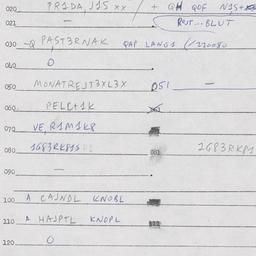 020 PR1DA, J15 xx / + QH QOF N15+
021 — RUT...BLUT
030 -Q PAST3RNAK QAP LANG1 (/220080
040 O
050 MONATREJT3XL3X 051 —
060 PELC+1K
070 VE R1M1K8
080 1G83RK81S 081 1G83RK81
090 —
100 A CAJNDL KNOBL
110 A HAJPTL KNOPL
120 O